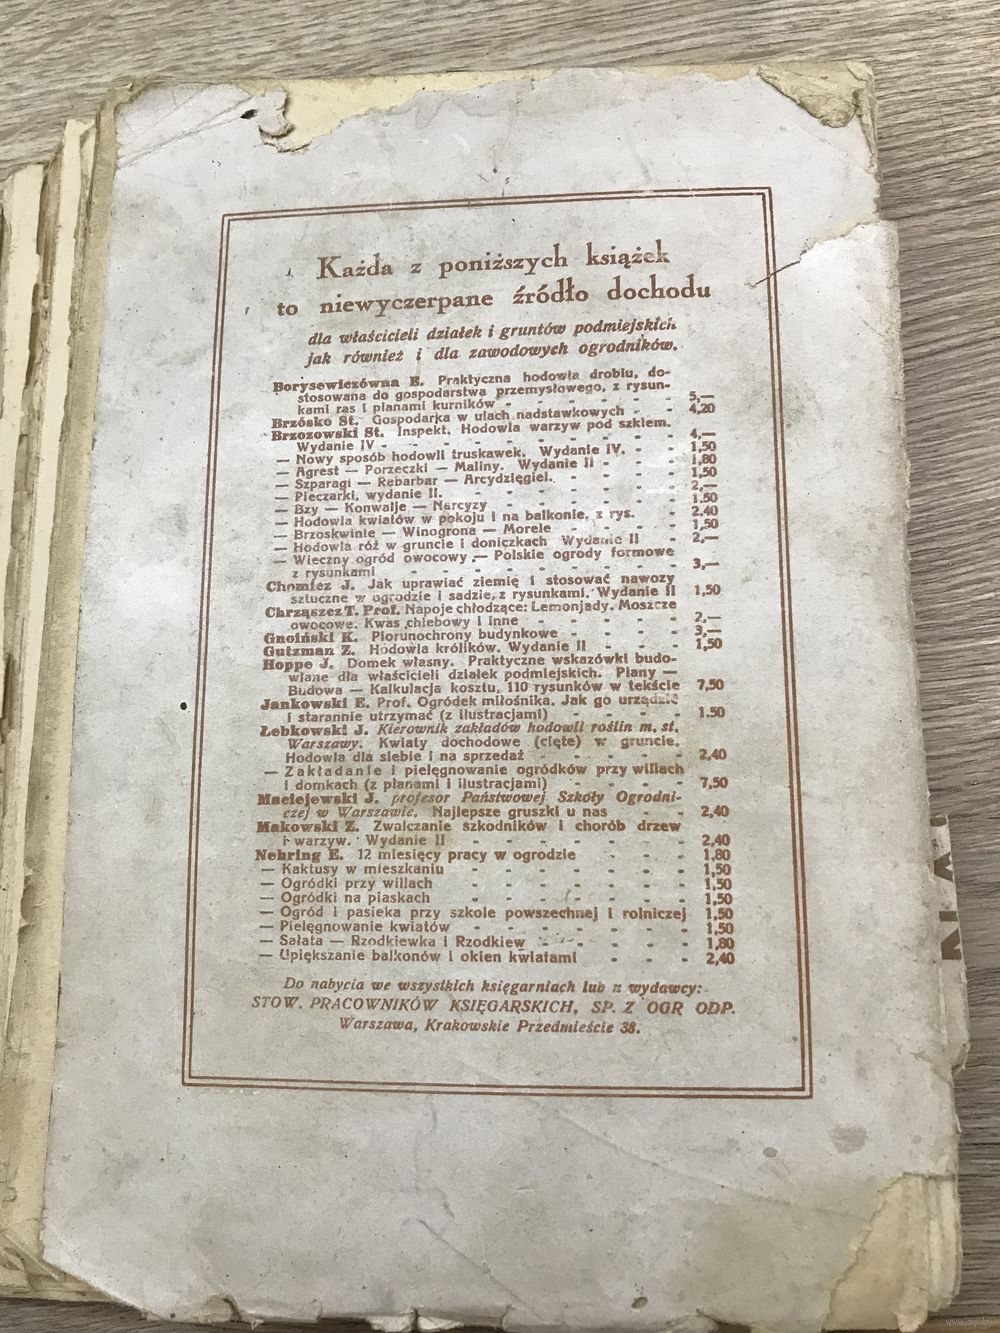 Każda z poniższych książek
to niewyczerpane źródło dochodu
dla właścicieli działek i gruntów podmiejskich
jak również i dla zawodowych ogrodników.
Borysewiczówna E. Praktyczna hodowla drobiu, do-
stosowana do gospodarstwa przemysłowego, z rysun-
kami ras i planami kurników - - - - - 5,—
Brzósko St. Gospodarka w ulach nadstawkowych - - 4,20
Brzozowski St. Inspekt. Hodowla warzyw pod szkłem.
Wydanie IV - - - - - - - - 4,—
— Nowy sposób hodowli truskawek. Wydanie IV. - - 1,50
— Agrest — Porzeczki — Maliny. Wydanie II - - - 1,80
— Szparagi — Rebarbar — Arcydzięgiel. - - - - 1,50
— Pieczarki, wydanie II. - - - - - - 2,—
— Bzy — Konwalje — Narcyzy - - - - - 1,50
— Hodowla kwiatów w pokoju i na balkonie, z rys. - 2,40
— Brzoskwinie — Winogrona — Morele - - - - 1,50
— Hodowla róż w gruncie i doniczkach Wydanie II - 2,—
— Wieczny ogród owocowy — Polskie ogrody formowe
z rysunkami - - - - - - - - 3,—
Chomicz J. Jak uprawiać ziemię i stosować nawozy
sztuczne w ogrodzie i sadzie, z rysunkami. Wydanie II 1,50
Chrząszcz T. Prof. Napoje chłodzące: Lemonjady. Moszcze
owocowe. Kwas chlebowy i inne - - - - - 2,—
Gnoiński K. Piorunochrony budynkowe - - - - 3,—
Gutzman Z. Hodowla królików. Wydanie II - - - 1,50
Hoppe J. Domek własny. Praktyczne wskazówki budo-
wlane dla właścicieli działek podmiejskich. Plany —
Budowa — Kalkulacja kosztu, 110 rysunków w tekście 7,50
Jankowski E. Prof. Ogródek miłośnika. Jak go urządzić
i starannie utrzymać (z ilustracjami) - - - - 1.50
Łebkowski J. Kierownik zakładów hodowli roślin m. st.
Warszawy. Kwiaty dochodowe (cięte) w gruncie.
Hodowla dla siebie i na sprzedaż - - - - - 2,40
— Zakładanie i pielęgnowanie ogródków przy willach
i domkach (z planami i ilustracjami) - - - - 7,50
Maciejewski J. profesor Państwowej Szkoły Ogrodni-
czej w Warszawie. Najlepsze gruszki u nas - - 2,40
Makowski Z. Zwalczanie szkodników i chorób drzew
i warzyw. Wydanie II - - - - - - - 2,40
Nehring E. 12 miesięcy pracy w ogrodzie - - - - 1,80
— Kaktusy w mieszkaniu - - - - - - - 1,50
— Ogródki przy willach - - - - - - - 1,50
— Ogródki na piaskach - - - - - - - 1,50
— Ogród i pasieka przy szkole powszechnej i rolniczej 1,50
— Pielęgnowanie kwiatów - - - - - - - 1,50
— Sałata — Rzodkiewka i Rzodkiew - - - - - 1,80
— Upiększanie balkonów i okien kwiatami - - - 2,40
Do nabycia we wszystkich księgarniach lub u wydawcy:
STOW. PRACOWNIKÓW KSIĘGARSKICH, SP. Z OGR ODP.
Warszawa, Krakowskie Przedmieście 38.
www.ay.by